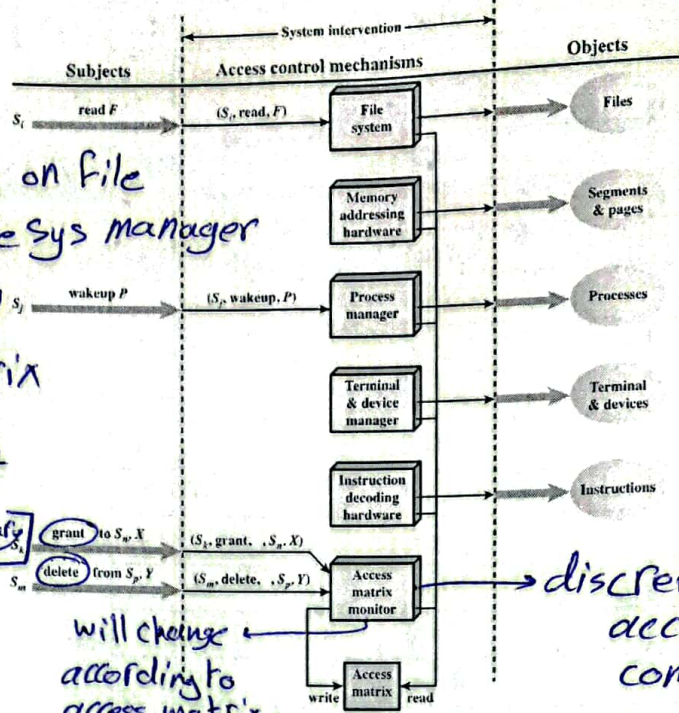 System intervention
Subjects Access control mechanisms Objects
S_i read F (S_i, read, F) File system Files
on file
Memory addressing hardware Segments & pages
sys manager
S_j wakeup P (S_j, wakeup, P) Process manager Processes
Terminal & device manager Terminal & devices
Instruction decoding hardware Instructions
S_k grant to S_n, X (S_k, grant, , S_n, X)
S_m delete from S_p, Y (S_m, delete, , S_p, Y) Access matrix monitor
will change
according to
access matrix
write Access matrix read